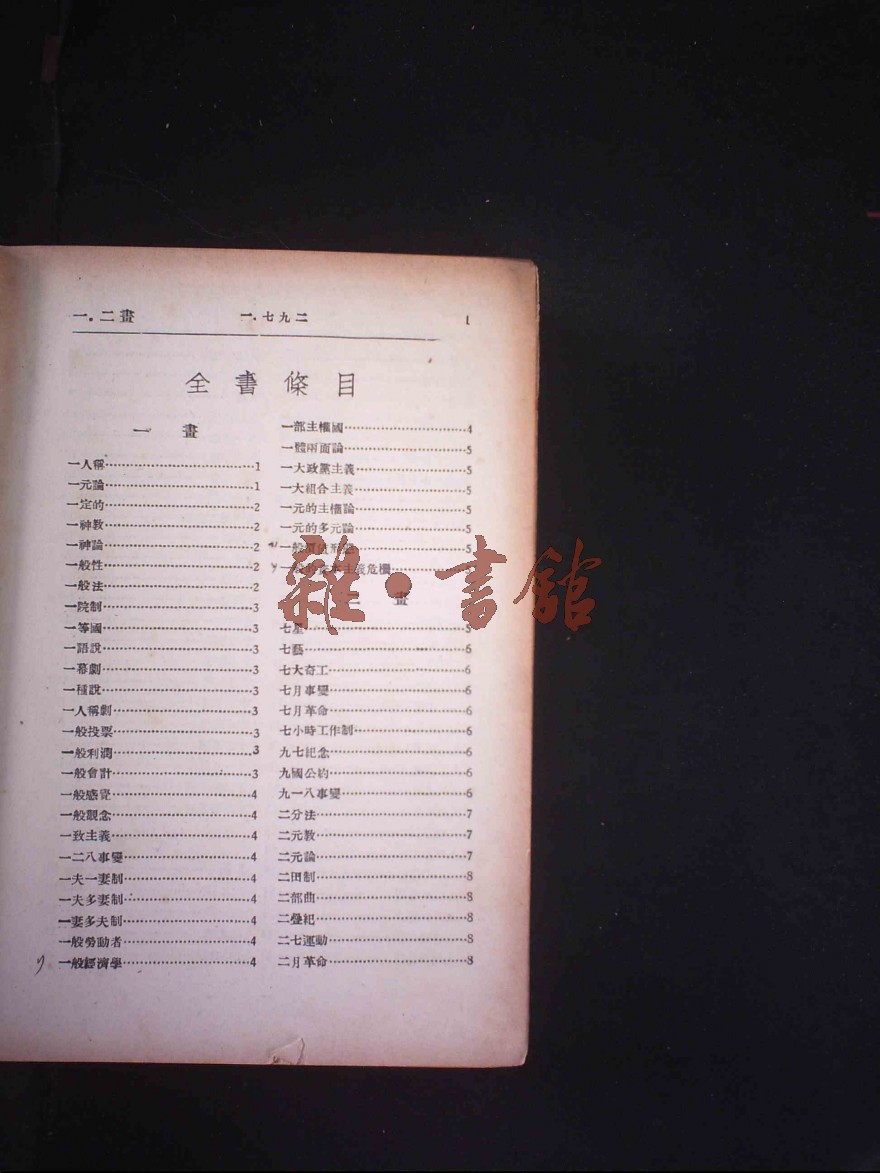 一．二畫 一．七九二 1
全書條目
一畫
一人稱⋯⋯1
一元論⋯⋯1
一定的⋯⋯2
一神教⋯⋯2
一神論⋯⋯2
一般性⋯⋯2
一般法⋯⋯2
一院制⋯⋯3
一等國⋯⋯3
一語說⋯⋯3
一幕劇⋯⋯3
一種說⋯⋯3
一人稱劇⋯⋯3
一般投票⋯⋯3
一般利潤⋯⋯3
一般會計⋯⋯3
一般感覺⋯⋯4
一般觀念⋯⋯4
一致主義⋯⋯4
一二八事變⋯⋯4
一夫一妻制⋯⋯4
一夫多妻制⋯⋯4
一妻多夫制⋯⋯4
一般勞動者⋯⋯4
一般經濟學⋯⋯4
一部主權國⋯⋯4
一體兩面論⋯⋯5
一大政黨主義⋯⋯5
一大組合主義⋯⋯5
一元的主權論⋯⋯5
一元的多元論⋯⋯5
一般價值形態⋯⋯5
義危機⋯⋯
二畫
七星⋯⋯5
七藝⋯⋯6
七大奇工⋯⋯6
七月事變⋯⋯6
七月革命⋯⋯6
七小時工作制⋯⋯6
九七紀念⋯⋯6
九國公約⋯⋯6
九一八事變⋯⋯6
二分法⋯⋯7
二元教⋯⋯7
二元論⋯⋯7
二田制⋯⋯8
二部曲⋯⋯8
二疊紀⋯⋯8
二七運動⋯⋯8
二月革命⋯⋯8
雜·書館